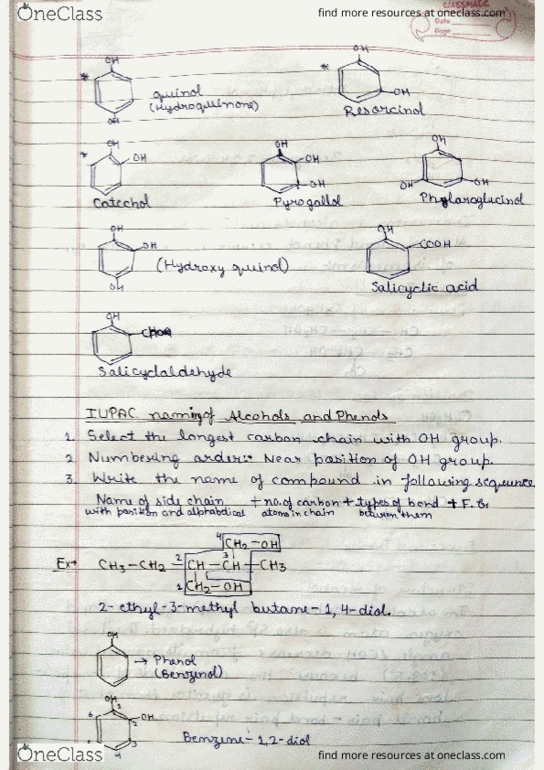 OneClass
find more resources at oneclass.com
CLASSMATE
Date
Page
OH
*
OH
quinol
(Hydroquinone)
OH
*
OH
Resorcinol
OH
*
OH
Catechol
OH
OH
OH
Pyrogallol
OH
OH
OH
Phylaroglucinol
OH
OH
OH
(Hydroxy quinol)
OH
COOH
Salicyclic acid
OH
Salicyclaldehyde
IUPAC naming of Alcohols and Phenols
1. Select the longest carbon chain with OH group.
2. Numbering order:- Near position of OH group.
3. Write the name of compound in following sequence
Name of side chain + no. of carbon + types of bond + F. Gr
with position and alphabetical atoms in chain between them
4 CH2-OH
Ex→ CH3-CH2-2CH-3CH-CH3
1 CH2-OH
2-ethyl-3-methyl butane-1,4-diol.
OH
→ Phenol
(Benzenol)
OH
1
2 OH
6
5
3
4
Benzene-1,2-diol
OneClass
find more resources at oneclass.com